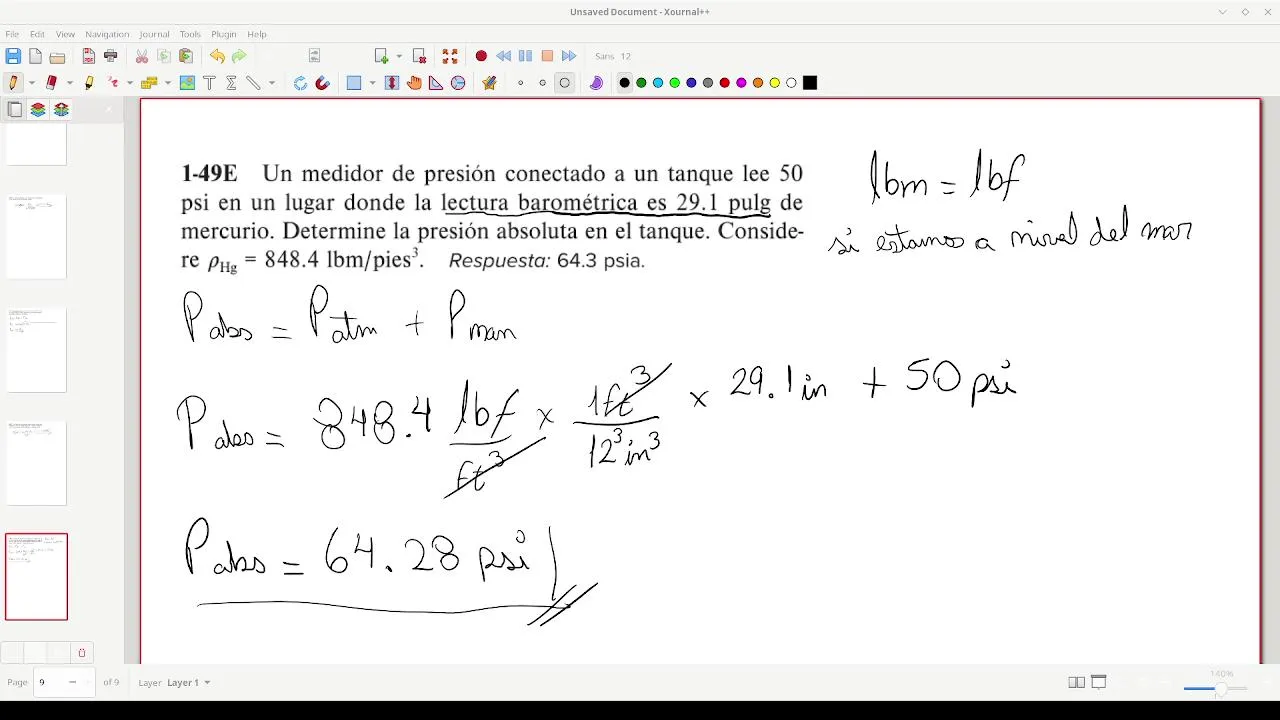 Unsaved Document - Xournal++
File Edit View Navigation Journal Tools Plugin Help
Sans 12
1-49E Un medidor de presión conectado a un tanque lee 50
psi en un lugar donde la lectura barométrica es 29.1 pulg de
mercurio. Determine la presión absoluta en el tanque. Conside-
re ρHg = 848.4 lbm/pies³. Respuesta: 64.3 psia.
lbm = lbf
si estamos a nivel del mar
Pabs = Patm + Pman
Pabs = 848.4 lbf/ft³ × 1ft³/12³in³ × 29.1in + 50 psi
Pabs = 64.28 psi
Page 9 of 9 Layer Layer 1 140%